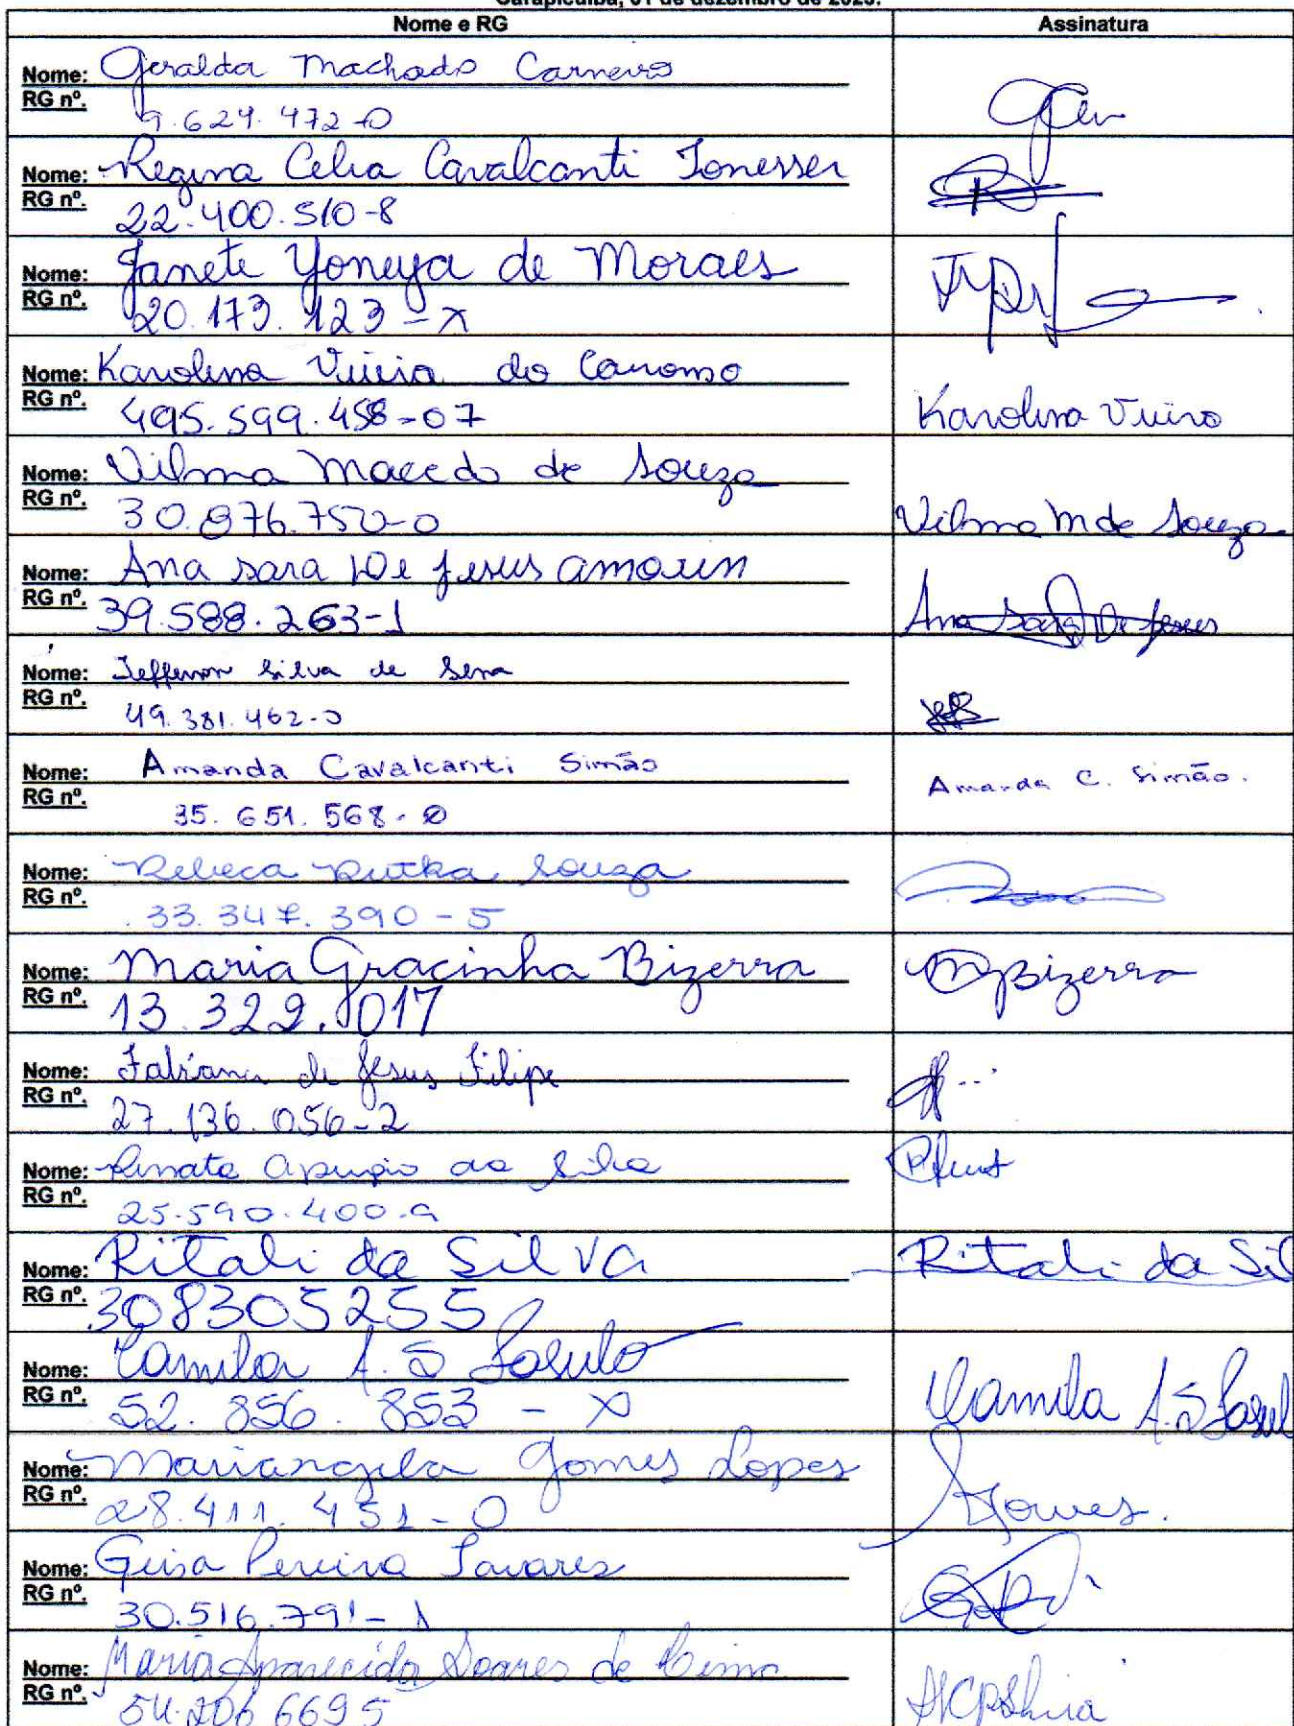 Carapicuíba, 01 de dezembro de 2023.
Nome e RG Assinatura
Nome: Geralda Machado Carneiro
RG nº. 9.624.472-0
Nome: Regina Celia Cavalcanti Tonesser
RG nº. 22.400.510-8
Nome: Janete Yoneya de Moraes
RG nº. 20.173.123-x
Nome: Karolina Vieira do
RG nº. 495.599.458-07
Karolina Vieira
Nome: Vilma Macedo de Souza
RG nº. 30.876.750-0
Vilma M de Souza
Nome: Ana sara De jesus amorim
RG nº. 39.588.263-1
Ana Sara De jesus
Nome: Jefferson Silva de Sena
RG nº. 49.381.462-0
Nome: Amanda Cavalcanti Simão
RG nº. 35.651.568-0
Amanda C. Simão.
Nome: Rebeca Rutka Souza
RG nº. 33.347.390-5
Nome: Maria Gracinha Bizerra
RG nº. 13.329.017
MGBizerra
Nome: Fabiana de Jesus Filipe
RG nº. 27.136.056-2
Nome: Renata da Silva
RG nº. 25.590.400.9
Nome: Ritali da Silva
RG nº. 308305255
Ritali da Sil
Nome: Camila A. S Fasulo
RG nº. 52.856.853-X
Camila A.S Fasul
Nome: Mariangela Gomes Lopes
RG nº. 28.411.451-0
Gomes.
Nome: Geisa Pereira Tavares
RG nº. 30.516.791-1
Nome: Maria Aparecida Soares de Lima
RG nº. 54.206 6695